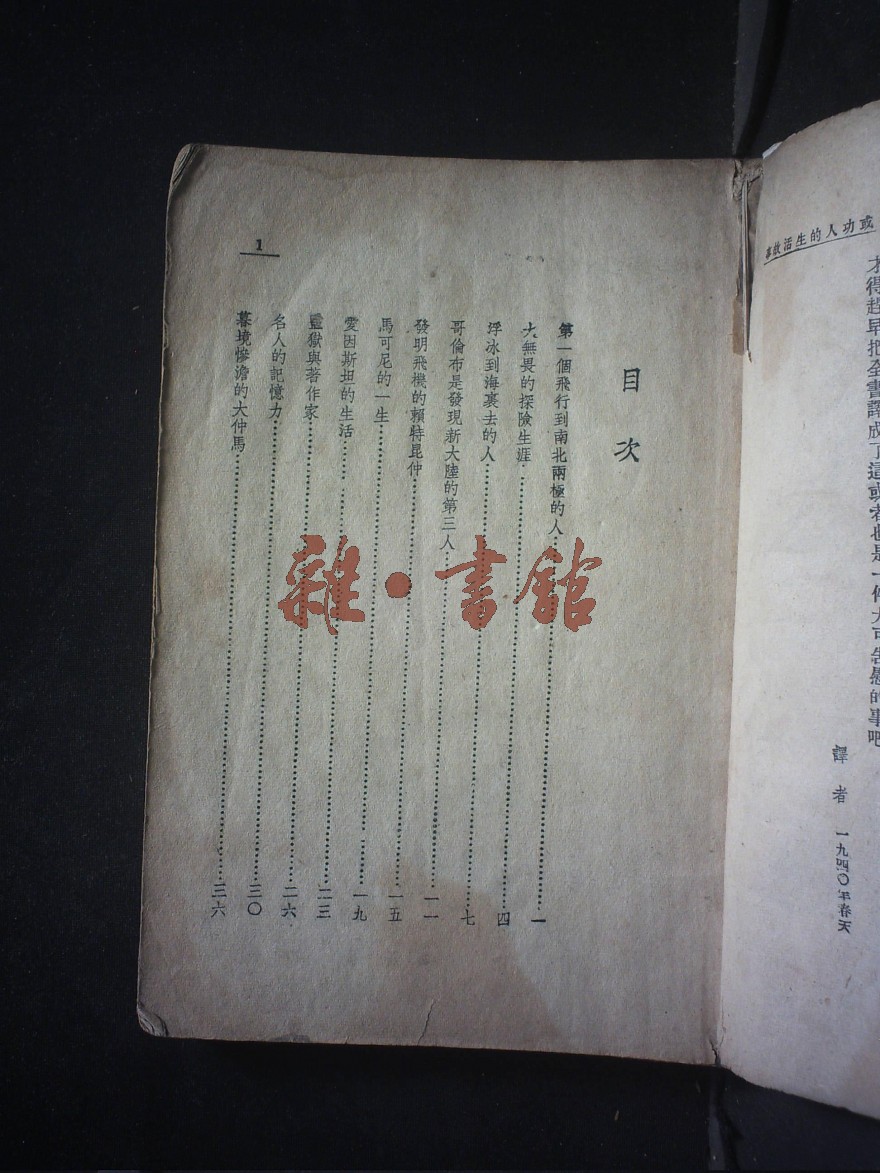 成功人的生活故事
得趕早把全書譯成了這或者也是一件大可告慰的事吧
譯者 一九四〇年春天
目次
第一個飛行到南北兩極的人……一
大無畏的探險生涯……四
浮冰到海裏去的人……七
哥倫布是發現新大陸的第三人……一一
發明飛機的賴特昆仲……一五
馬可尼的一生……一九
愛因斯坦的生活……二三
監獄與著作家……二六
名人的記憶力……三〇
暮境慘澹的大仲馬……三六
1
雜·書館